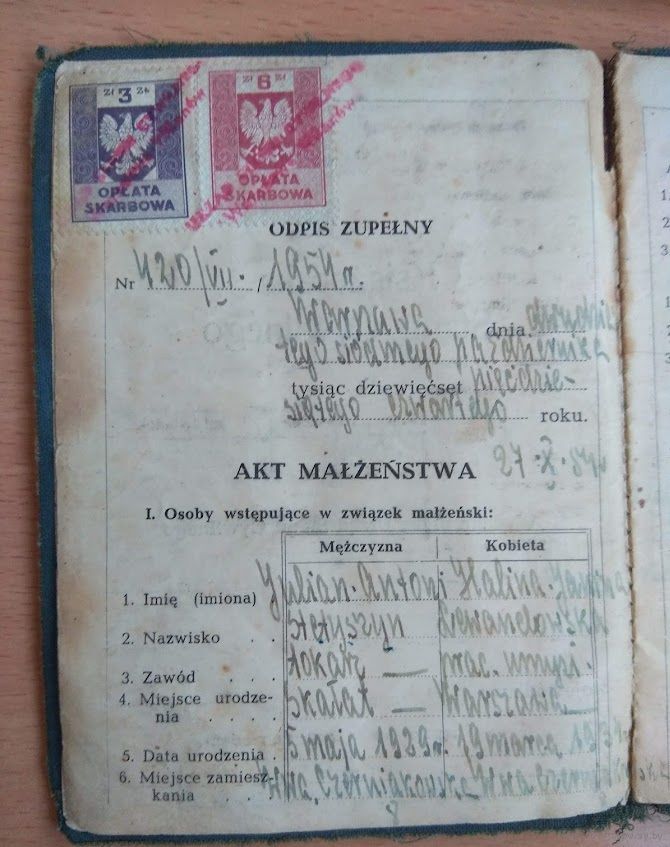 Zł 3 Zł
OPŁATA
SKARBOWA
Zł 6 Zł
OPŁATA
SKARBOWA
ODPIS ZUPEŁNY
Nr 420/VII. / 1954 r.
Warszawa dnia dwudzies
tego siódmego października
tysiąc dziewięćset pięćdzie-
siątego czwartego roku.
27.X.54
AKT MAŁŻEŃSTWA
I. Osoby wstępujące w związek małżeński:
Mężczyzna Kobieta
1. Imię (imiona) Julian-Antoni Halina-Janina
2. Nazwisko . . Lewandowska
3. Zawód . . . tokarz — prac. umysł.
4. Miejsce urodze-
nia . . . . Skałat — Warszawa —
5. Data urodzenia . 5 maja 1929 r. 19 marca
6. Miejsce zamiesz-
kania . . W-wa, Czerniakowska W-wa